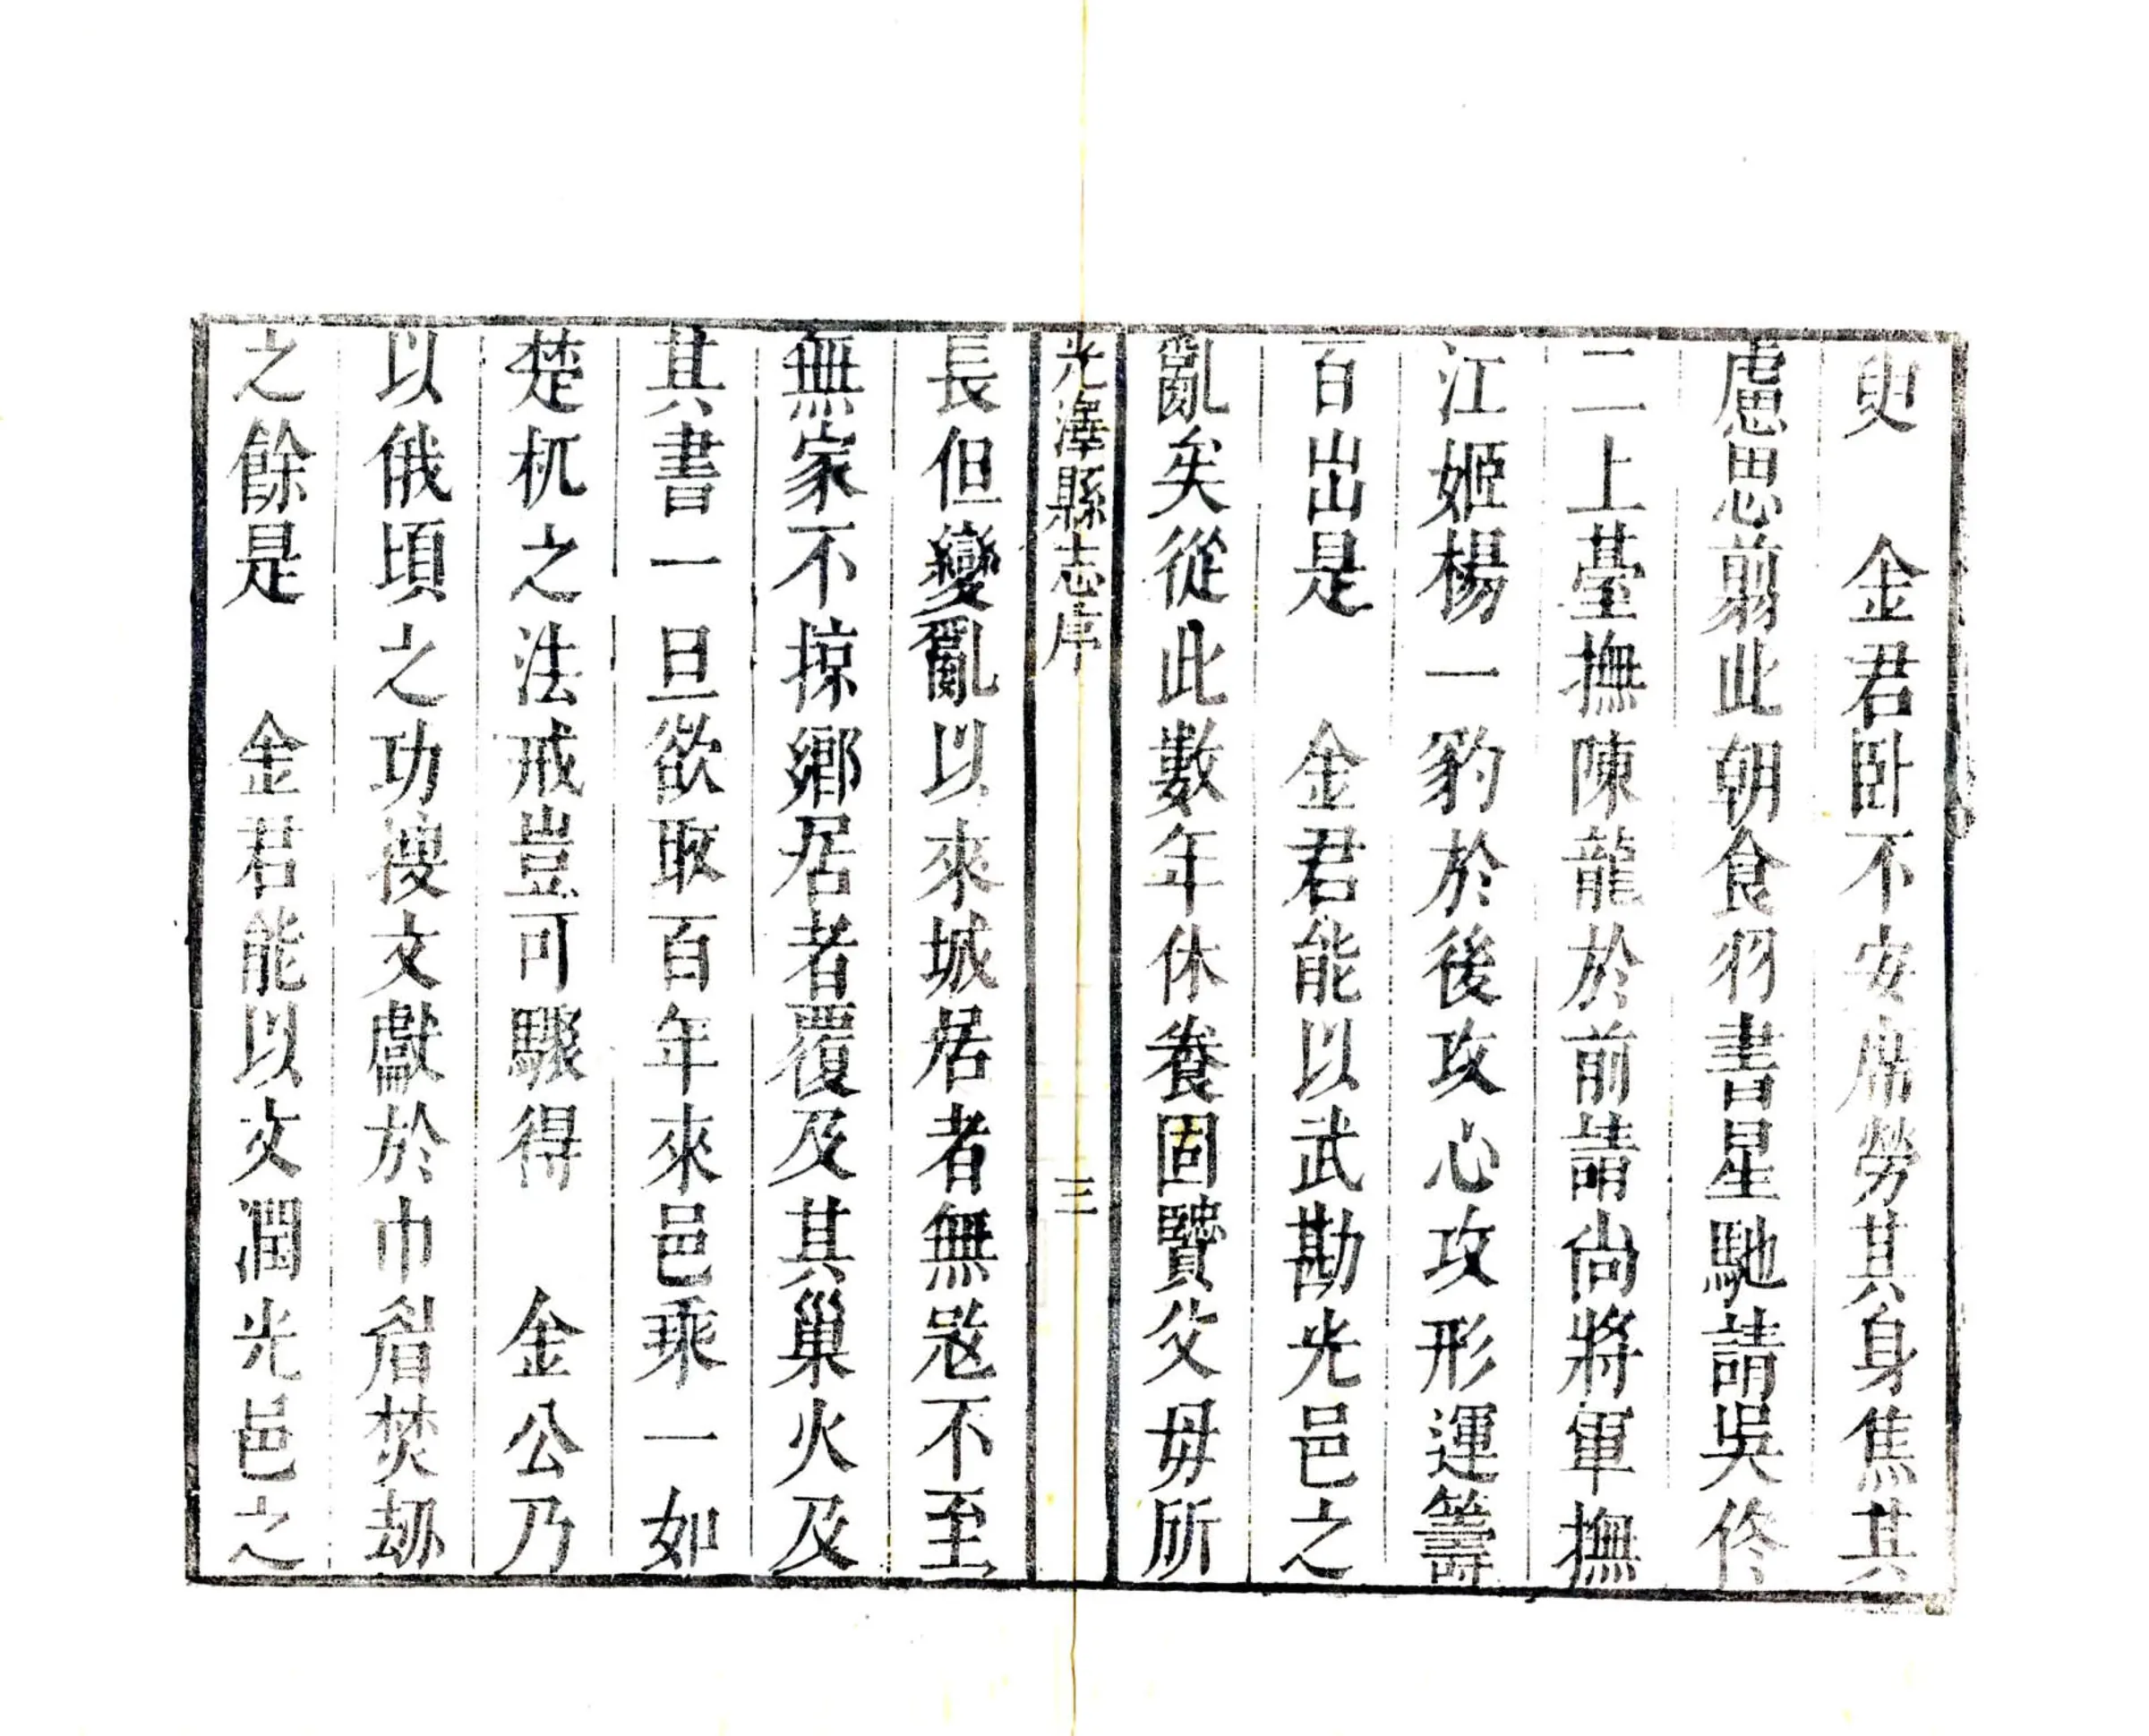 臾　金君臥不安席勞其身焦其
慮思翦此朝食羽書星馳請吳佟
二上臺撫陳龍於前請尚將軍撫
江姬楊一豹於後攻心攻形運籌
百出是　金君能以武勘光邑之
亂矣從此數年休養固贒父母所
光澤縣志序　三
長但變亂以來城居者無寇不至
無家不掠鄉居者覆及其巢火及
其書一旦欲取百年來邑乘一如
楚杌之法戒豈可驟得　金公乃
以俄頃之功搜文獻於巾笥焚刼
之餘是　金君能以文潤光邑之